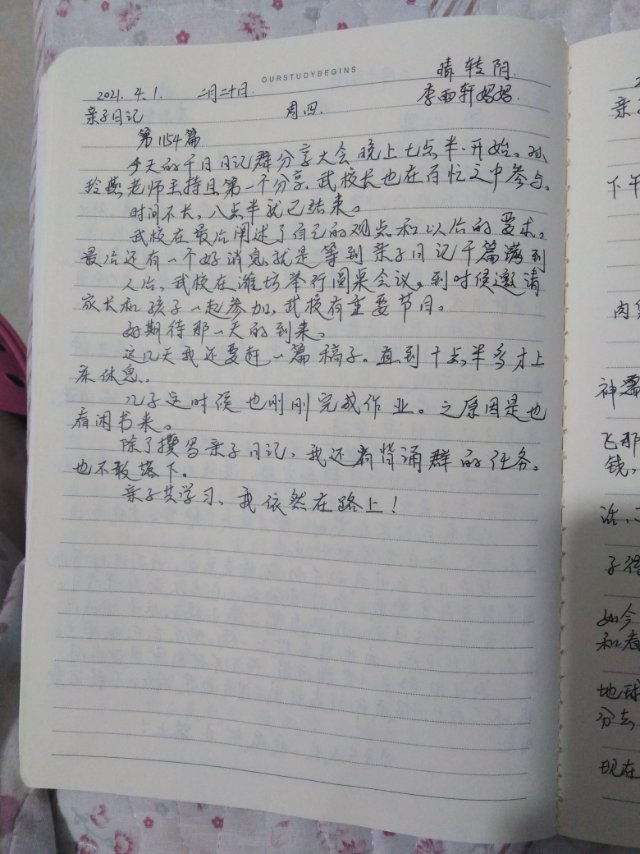 OURSTUDYBEGINS
晴转阴.
2021. 4. 1. 二月二十日. 周四. 李雨轩妈妈.
亲子日记
第1154篇
今天的千日日记群分享大会晚上七点半开始。孙
玲燕老师主持且第一个分享.武校长也在百忙之中参与.
时间不长,八点半就已结束。
武校在最后阐述了自己的观点和以后的要求.
最后还有一个好消息就是等到亲子日记千篇满到
人后,武校在潍坊举行圆桌会议.到时候邀请
家长和孩子一起参加,武校有重要节目.
好期待那一天的到来。
这几天我还要赶一篇稿子.直到十点半多才上
床休息.
儿子这时候也刚刚完成作业。之原因是也
看闲书来。
除了撰写亲子日记,我还有背诵群的任务.
也不敢落下.
亲子共学习、我依然在路上!
下午
肉
神
飞那
钱,
子
如今
和春
地球
分去
现在